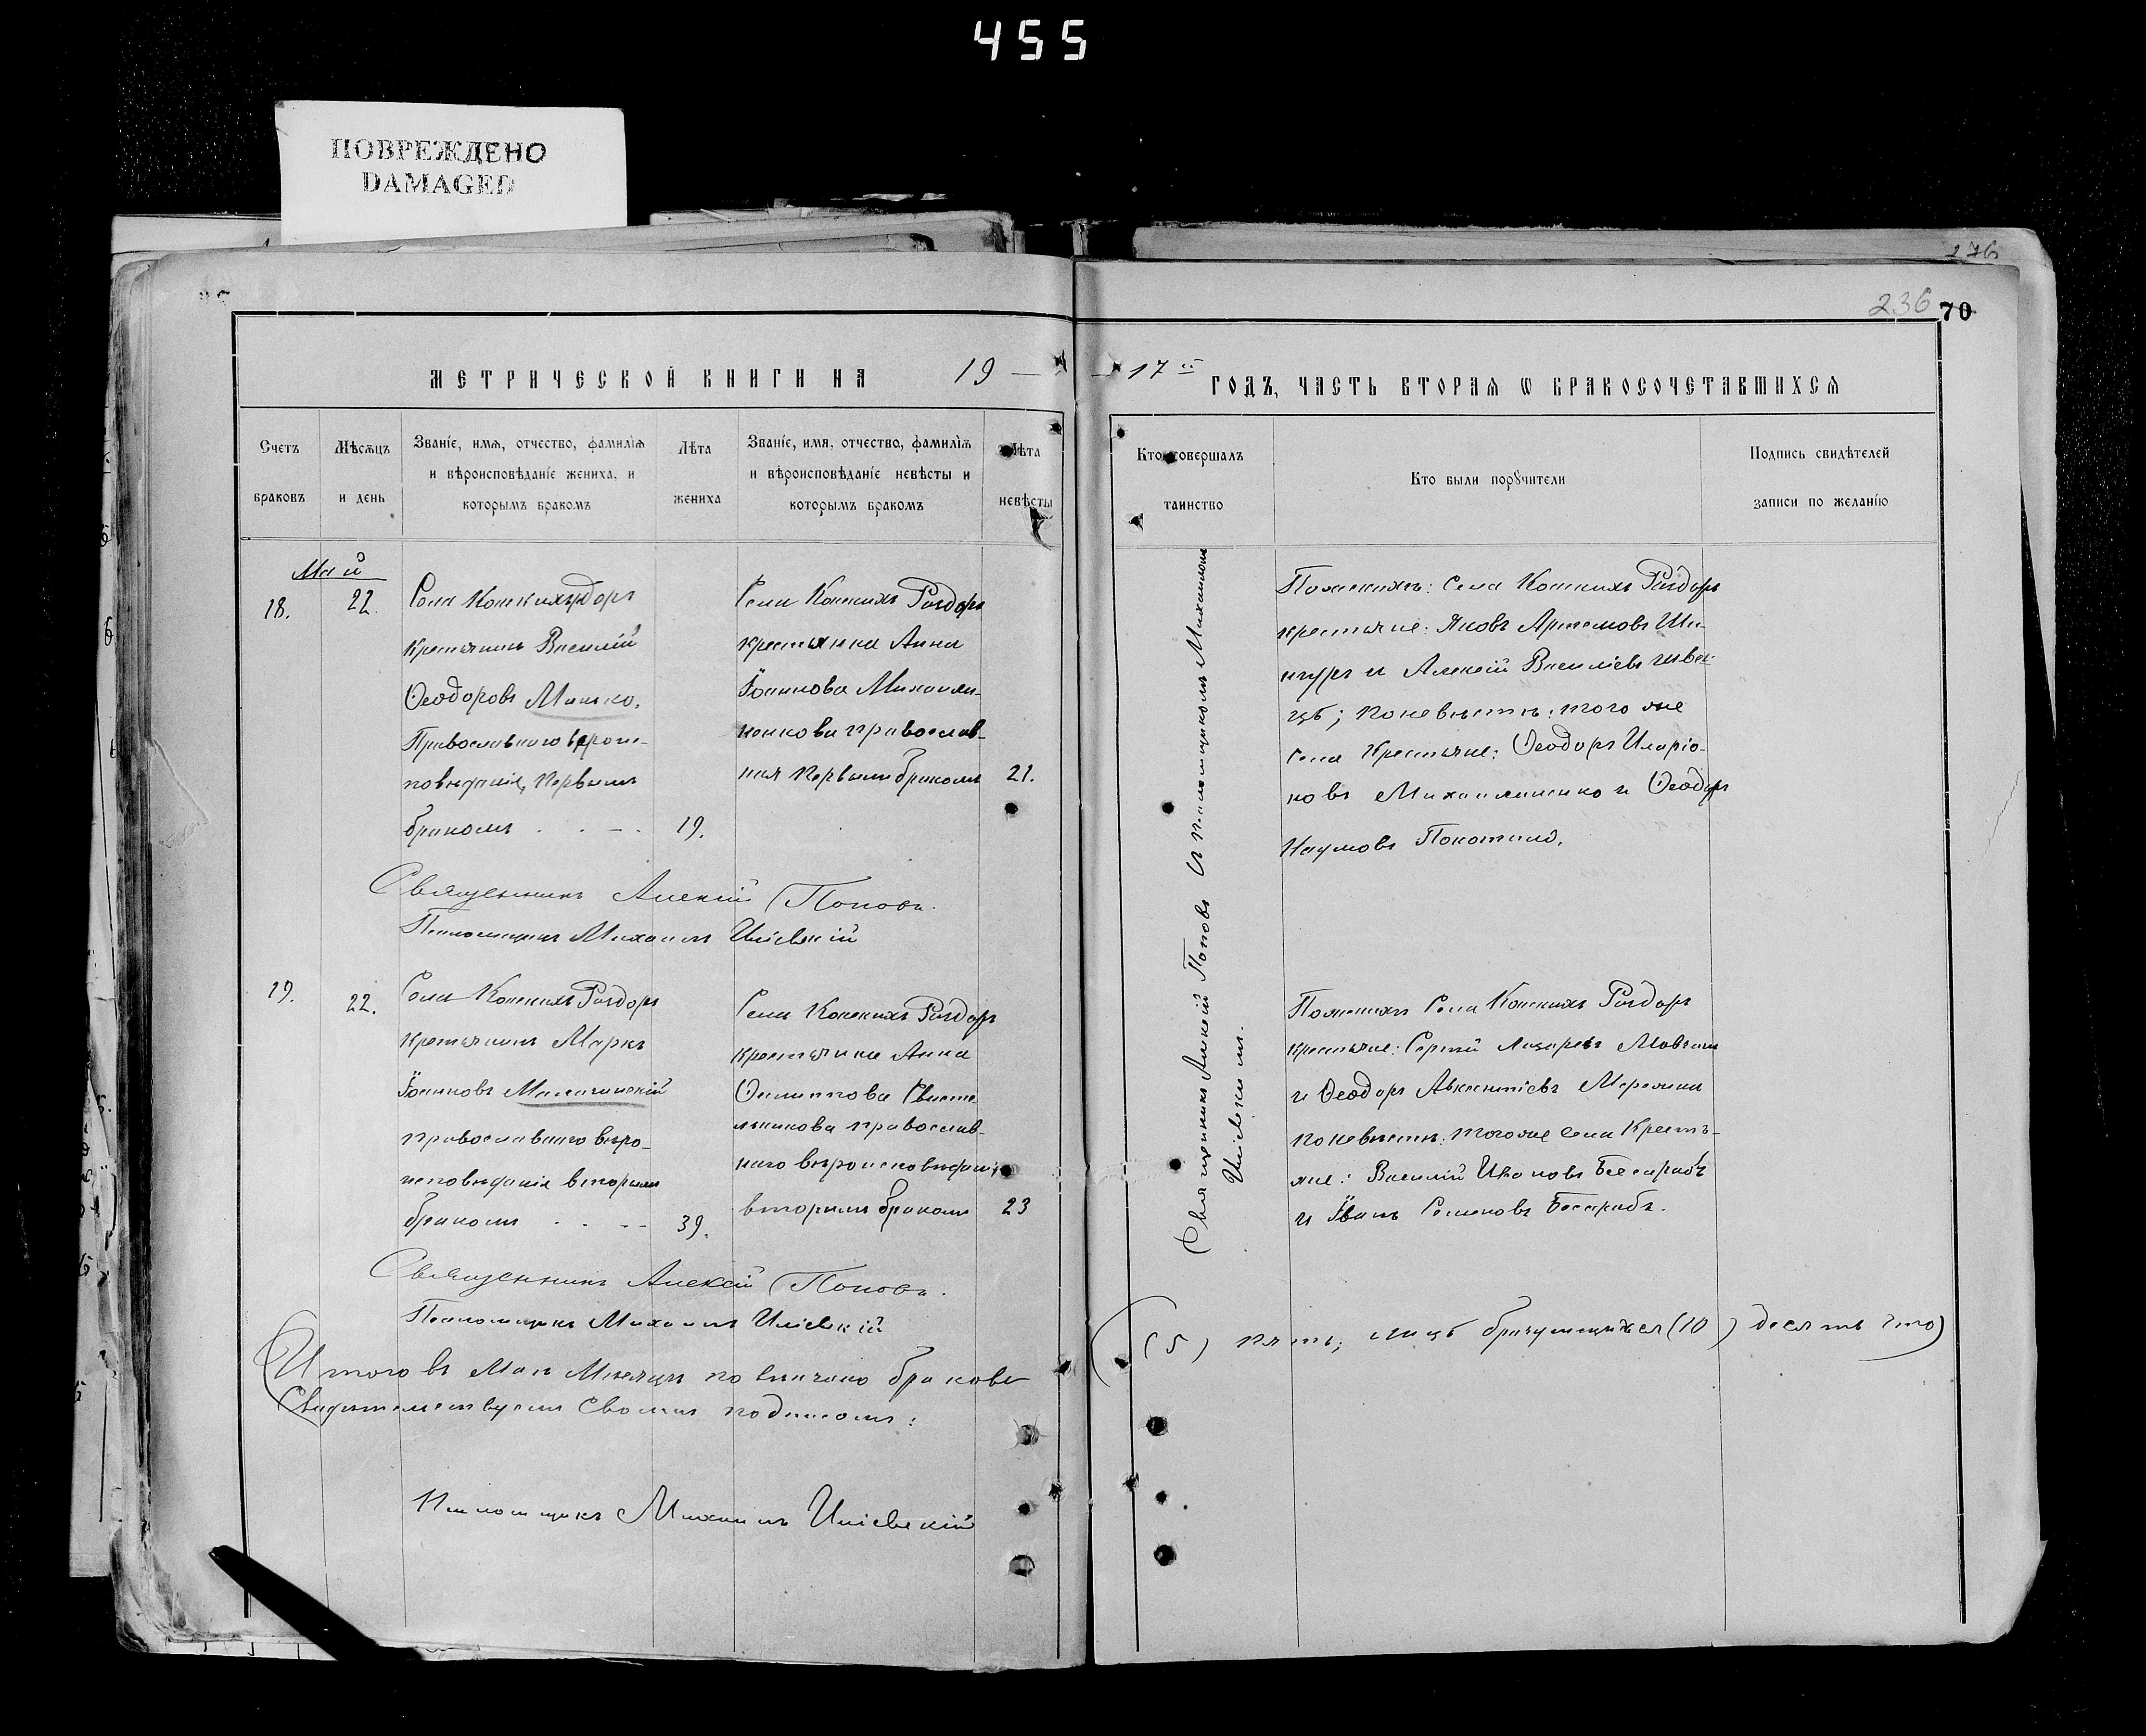 455
ПОВРЕЖДЕНО
DAMAGED
276
236 70
МЕТРИЧЕСКОЙ КНИГИ НА 19
17 ГОДЪ, ЧАСТЬ ВТОРАЯ Ѡ БРАКОСОЧЕТАВШИХСЯ
Счетъ браковъ
Мѣсяцъ и день
Званіе, имя, отчество, фамилія и вѣроисповѣданіе жениха, и которымъ бракомъ
Лѣта жениха
Званіе, имя, отчество, фамилія и вѣроисповѣданіе невѣсты и которымъ бракомъ
Лѣта невѣсты
Кто совершалъ таинство
Кто были поручители
Подпись свидѣтелей записи по желанію
Май
18.
22.
Села Конскихъ
крестьянинъ Василій
Ѳеодоровъ Минько,
Православнаго вѣроис-
повѣданія, первымъ
бракомъ
19.
Села Конскихъ Раздоръ
крестьянка Анна
Іоаннова Михайли-
ченкова православ-
ная первымъ бракомъ
21.
Священникъ Алексій Поповъ съ псаломщикомъ Михаиломъ
По женихѣ: Села Конскихъ Раздоръ
крестьяне: Яковъ Артемовъ
и Алексій Василіевъ Шве-
цъ; по невѣстѣ: того же
села крестьяне: Ѳеодоръ Иларіо-
новъ Михайличенко и Ѳеодоръ
Наумовъ Покотило.
Священникъ Алексій Поповъ.
Псаломщикъ Михаилъ
19.
22.
Села Конскихъ Раздоръ
крестьянинъ Маркъ
Іоанновъ
православнаго вѣро-
исповѣданія вторымъ
бракомъ
39.
Села Конскихъ Раздоръ
крестьянка Анна
Филиппова Свисте-
льникова православ-
наго вѣроисповѣданія
вторымъ бракомъ
23
По женихѣ Села Конскихъ Раздоръ
крестьяне: Сергій Лазаревъ Мовчан
и Ѳеодоръ Авксентіевъ
по невѣстѣ: того же села кресть-
яне: Василій Ивановъ Бессарабъ
и Іванъ Семеновъ Бесарабъ.
Священникъ Алексій Поповъ.
Псаломщикъ Михаилъ
Итого въ Маѣ Мѣсяцѣ повѣнчано браковъ
(5) пять; лицъ брачущихся (10) десять что
Свидѣтельствуемъ своимъ подписомъ:
Псаломщикъ Михаилъ